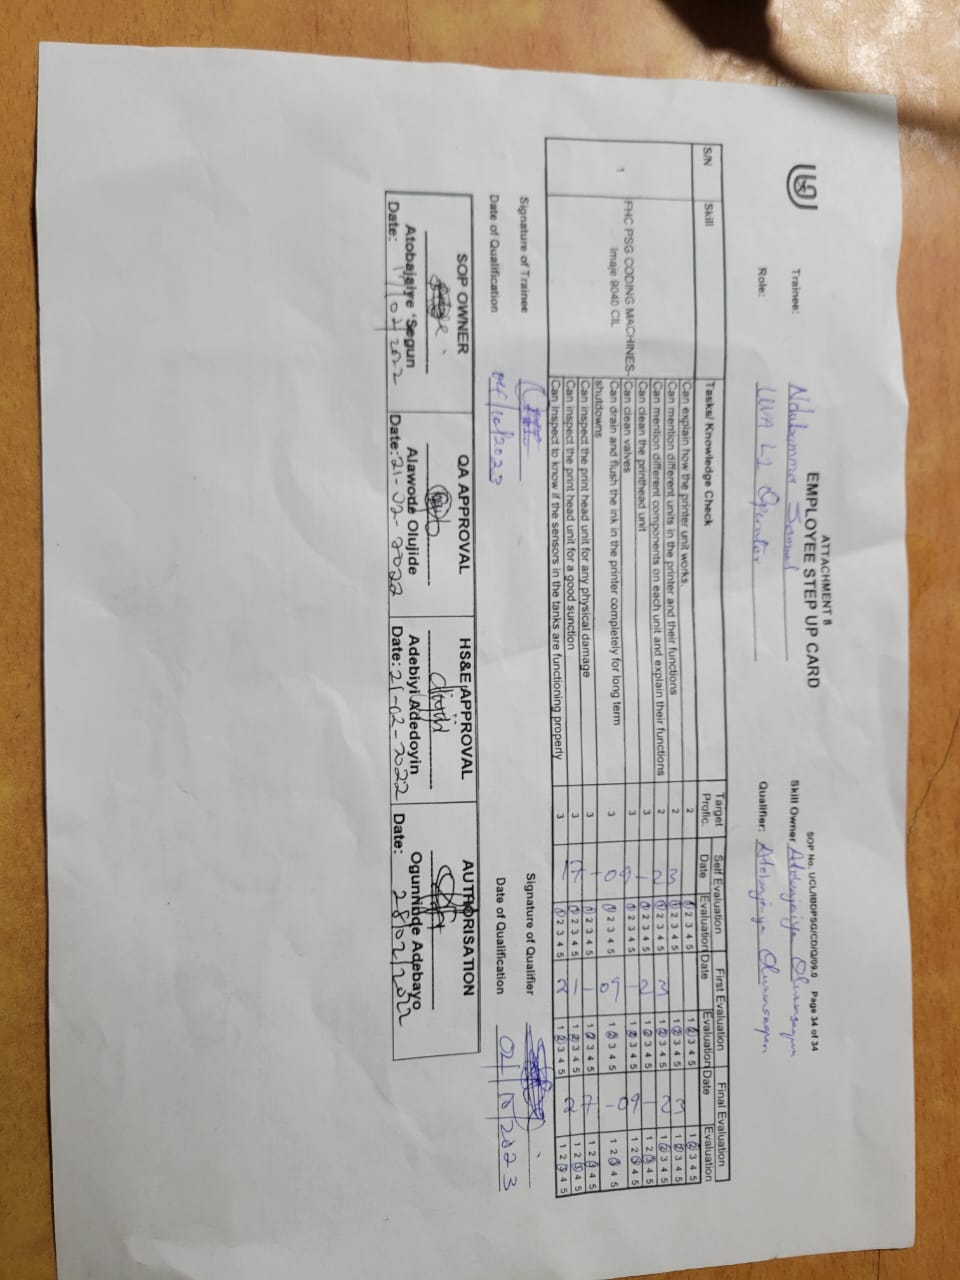 ATTACHMENT 8
EMPLOYEE STEP UP CARD
SOP No. UCL/IBDPSG/CD/Q/09.0 Page 34 of 34
Trainee: Samuel
Skill Owner
Role: L2 Operator
Qualifier:
S/N Skill Tasks/ Knowledge Check Target Profic. Self Evaluation Date Evaluation First Evaluation Date Evaluation Final Evaluation Date Evaluation
1 FHC PSG CODING MACHINES- Imaje 9040 CIL
Can explain how the printer unit works. 2 1 2 3 4 5 1 2 3 4 5 1 2 3 4 5
Can mention different units in the printer and their functions 2 1 2 3 4 5 1 2 3 4 5 1 2 3 4 5
Can mention different components on each unit and explain their functions 2 1 2 3 4 5 1 2 3 4 5 1 2 3 4 5
Can clean the printhead unit 3 1 2 3 4 5 1 2 3 4 5 1 2 3 4 5
Can clean valves 3 1 2 3 4 5 1 2 3 4 5 1 2 3 4 5
Can drain and flush the ink in the printer completely for long term 3 1 2 3 4 5 1 2 3 4 5 1 2 3 4 5
shutdowns
Can inspect the print head unit for any physical damage 3 1 2 3 4 5 1 2 3 4 5 1 2 3 4 5
Can inspect the print head unit for a good sunction 3 1 2 3 4 5 1 2 3 4 5 1 2 3 4 5
Can inspect to know if the sensors in the tanks are functioning properly 3 1 2 3 4 5 1 2 3 4 5 1 2 3 4 5
Signature of Trainee
Signature of Qualifier
Date of Qualification 04/10/2023
Date of Qualification 02/10/2023
SOP OWNER QA APPROVAL HS&E APPROVAL AUTHORISATION
Atobajaiye 'Segun Alawode Olujide Adebiyi Adedoyin Ogunnibde Adebayo
Date: 17/02/2022 Date: 21-02-2022 Date: 21-02-2022 Date: 28/02/2022